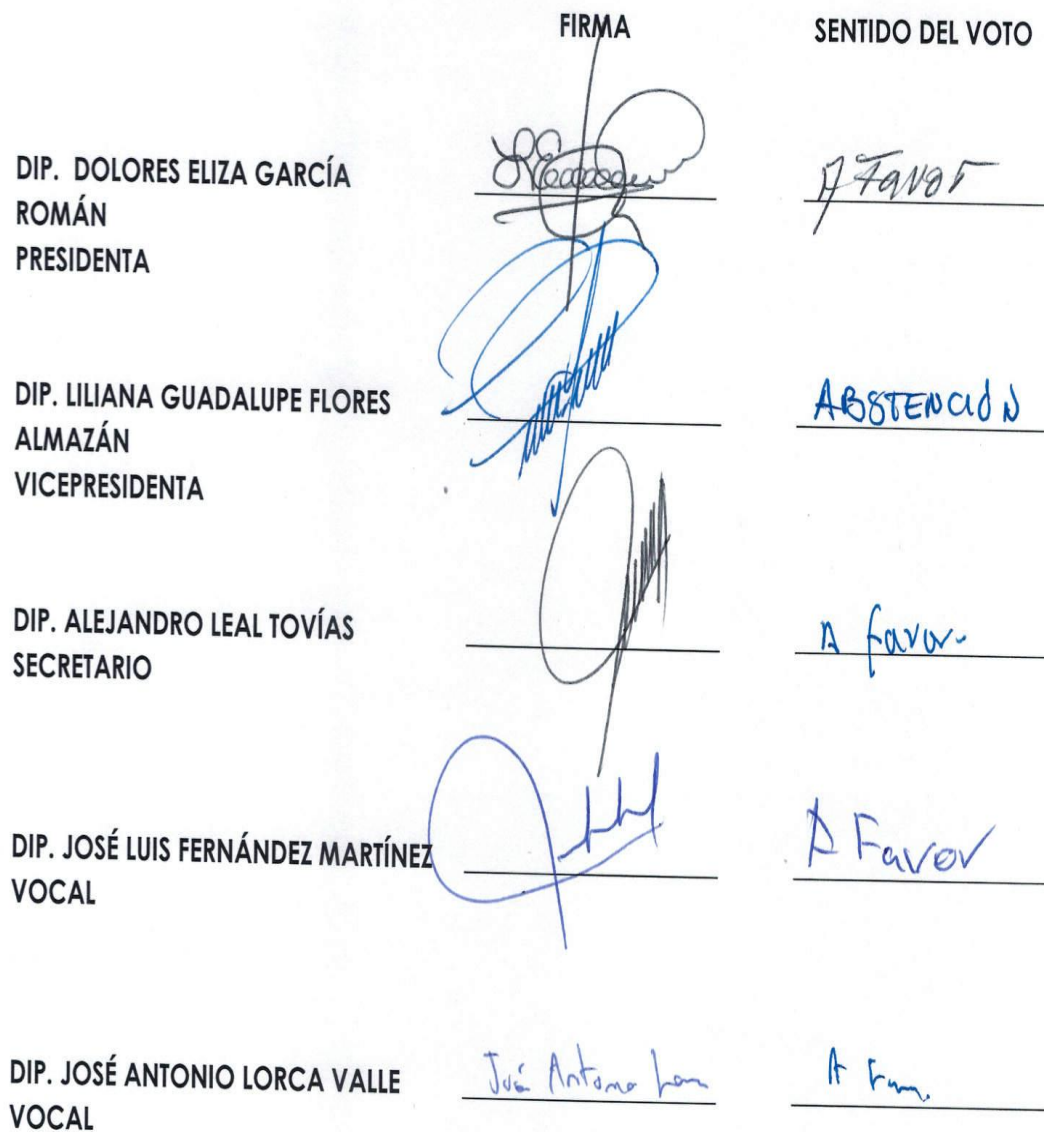 FIRMA SENTIDO DEL VOTO
DIP. DOLORES ELIZA GARCÍA
ROMÁN
PRESIDENTA
A Favor
DIP. LILIANA GUADALUPE FLORES
ALMAZÁN
VICEPRESIDENTA
ABSTENCIÓN
DIP. ALEJANDRO LEAL TOVÍAS
SECRETARIO
A favor.
DIP. JOSÉ LUIS FERNÁNDEZ MARTÍNEZ
VOCAL
A Favor
DIP. JOSÉ ANTONIO LORCA VALLE
VOCAL
José Antonio
A